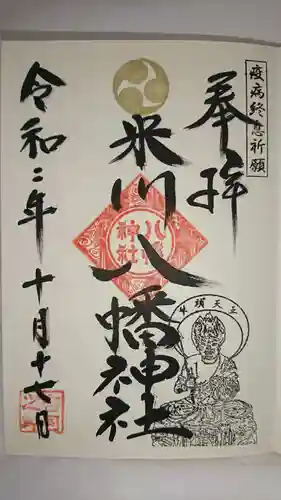 疫病終息祈願
奉拝
米川八幡神社
八幡神社
牛頭天王
令和二年十月十七日